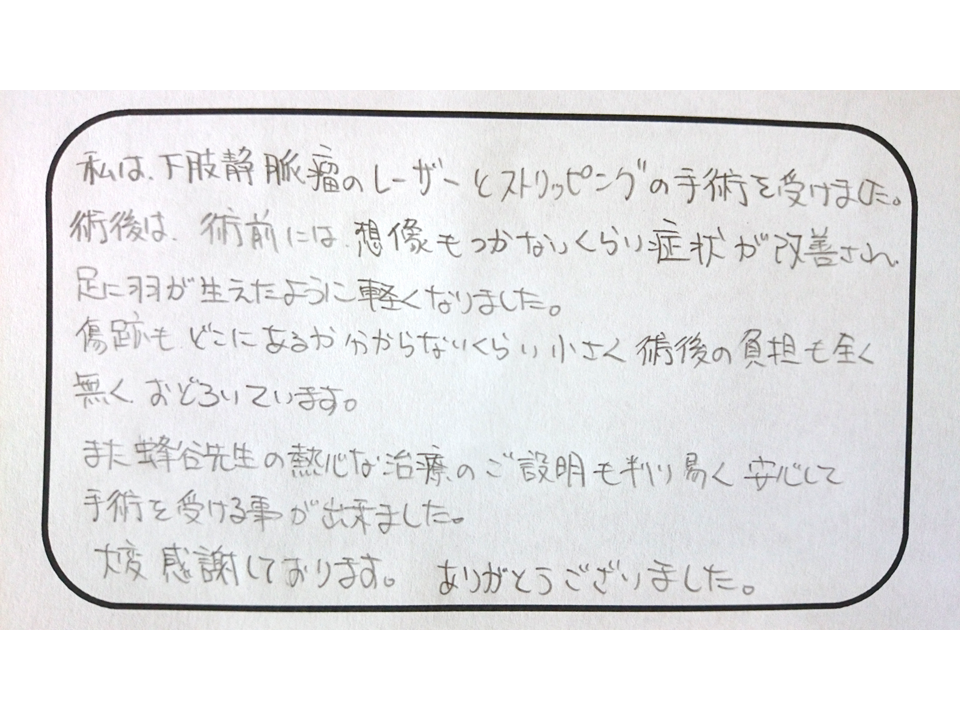 私は、下肢静脈瘤のレーザーとストリッピングの手術を受けました。
術後は、術前には、想像もつかないくらい症状が改善され、
足に羽が生えたように軽くなりました。
傷跡もどこにあるか分からないくらい小さく術後の負担も全く
無くおどろいています。
また蜂谷先生の熱心な治療のご説明も判り易く安心して
手術を受ける事が出来ました。
大変感謝しております。 ありがとうございました。